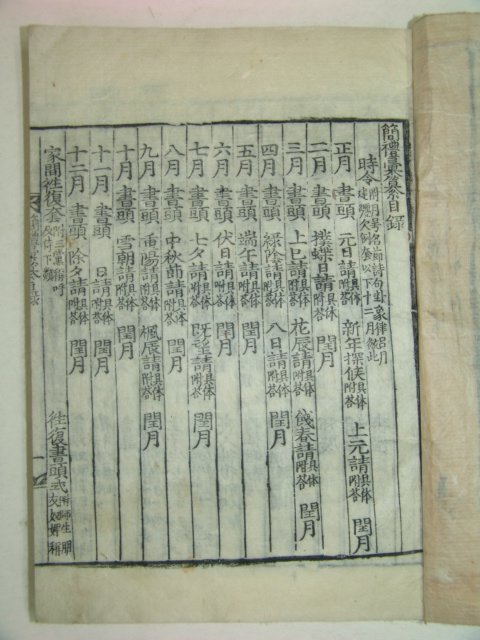 簡禮彙纂目録
時令
正月 書頭 元日請具体附答 新年探候具体附答 上元請具体附答 閏月
二月 書頭 撲蝶日請具体附答 閏月
三月 書頭 上巳請具体附答 花辰請具体附答 餞春請具体附答 閏月
四月 書頭 緑陰請具体附答 八日請具体附答 閏月
五月 書頭 端午請具体附答 閏月
六月 書頭 伏日請具体附答 閏月
七月 書頭 七夕請具体附答 既望請具体附答 閏月
八月 書頭 中秋節請具体附答 閏月
九月 書頭 重陽請具体附答 楓辰請具体附答 閏月
十月 書頭 雪朝請具体附答 閏月
十一月 書頭 日請具体附答 閏月
十二月 書頭 除夕請具体附答 閏月
家間徃復套 徃復書頭式